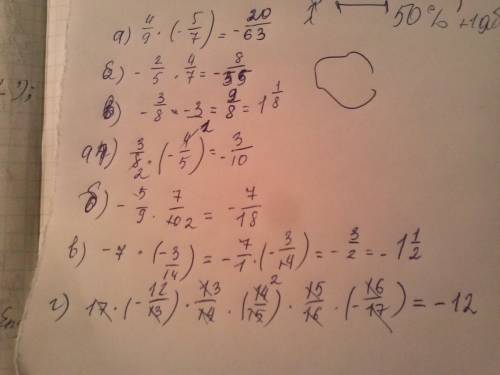 50%
а) 4/9 · (-5/7) = -20/63
б) -2/5 · 4/7 = -8/35
в) -3/8 · -3 = 9/8 = 1 1/8
а) 3/8 2 · (-4/5)¹ = -3/10
б) -5/9 · 7/10 2 = -7/18
в) -7 · (-3/14) = -7/1 · (-3/14) = -3/2 = -1 1/2
г) 17 · (-12/13) · 13/14 · (14/15)² · 15/16 · (-16/17) = -12